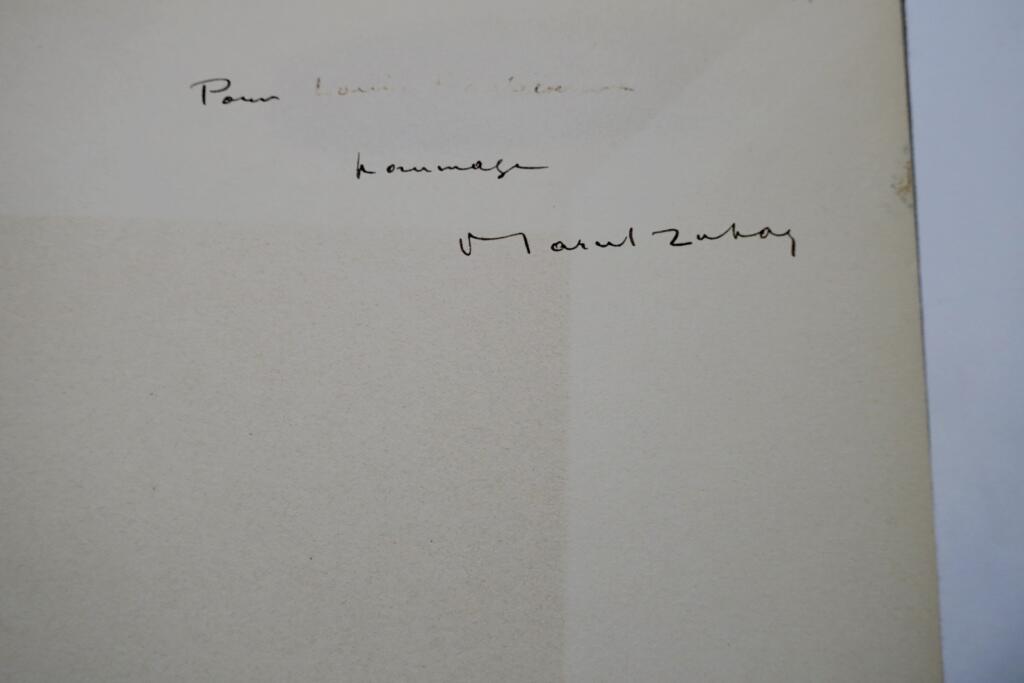 Pour Louis
hommage
Marcel Zahar